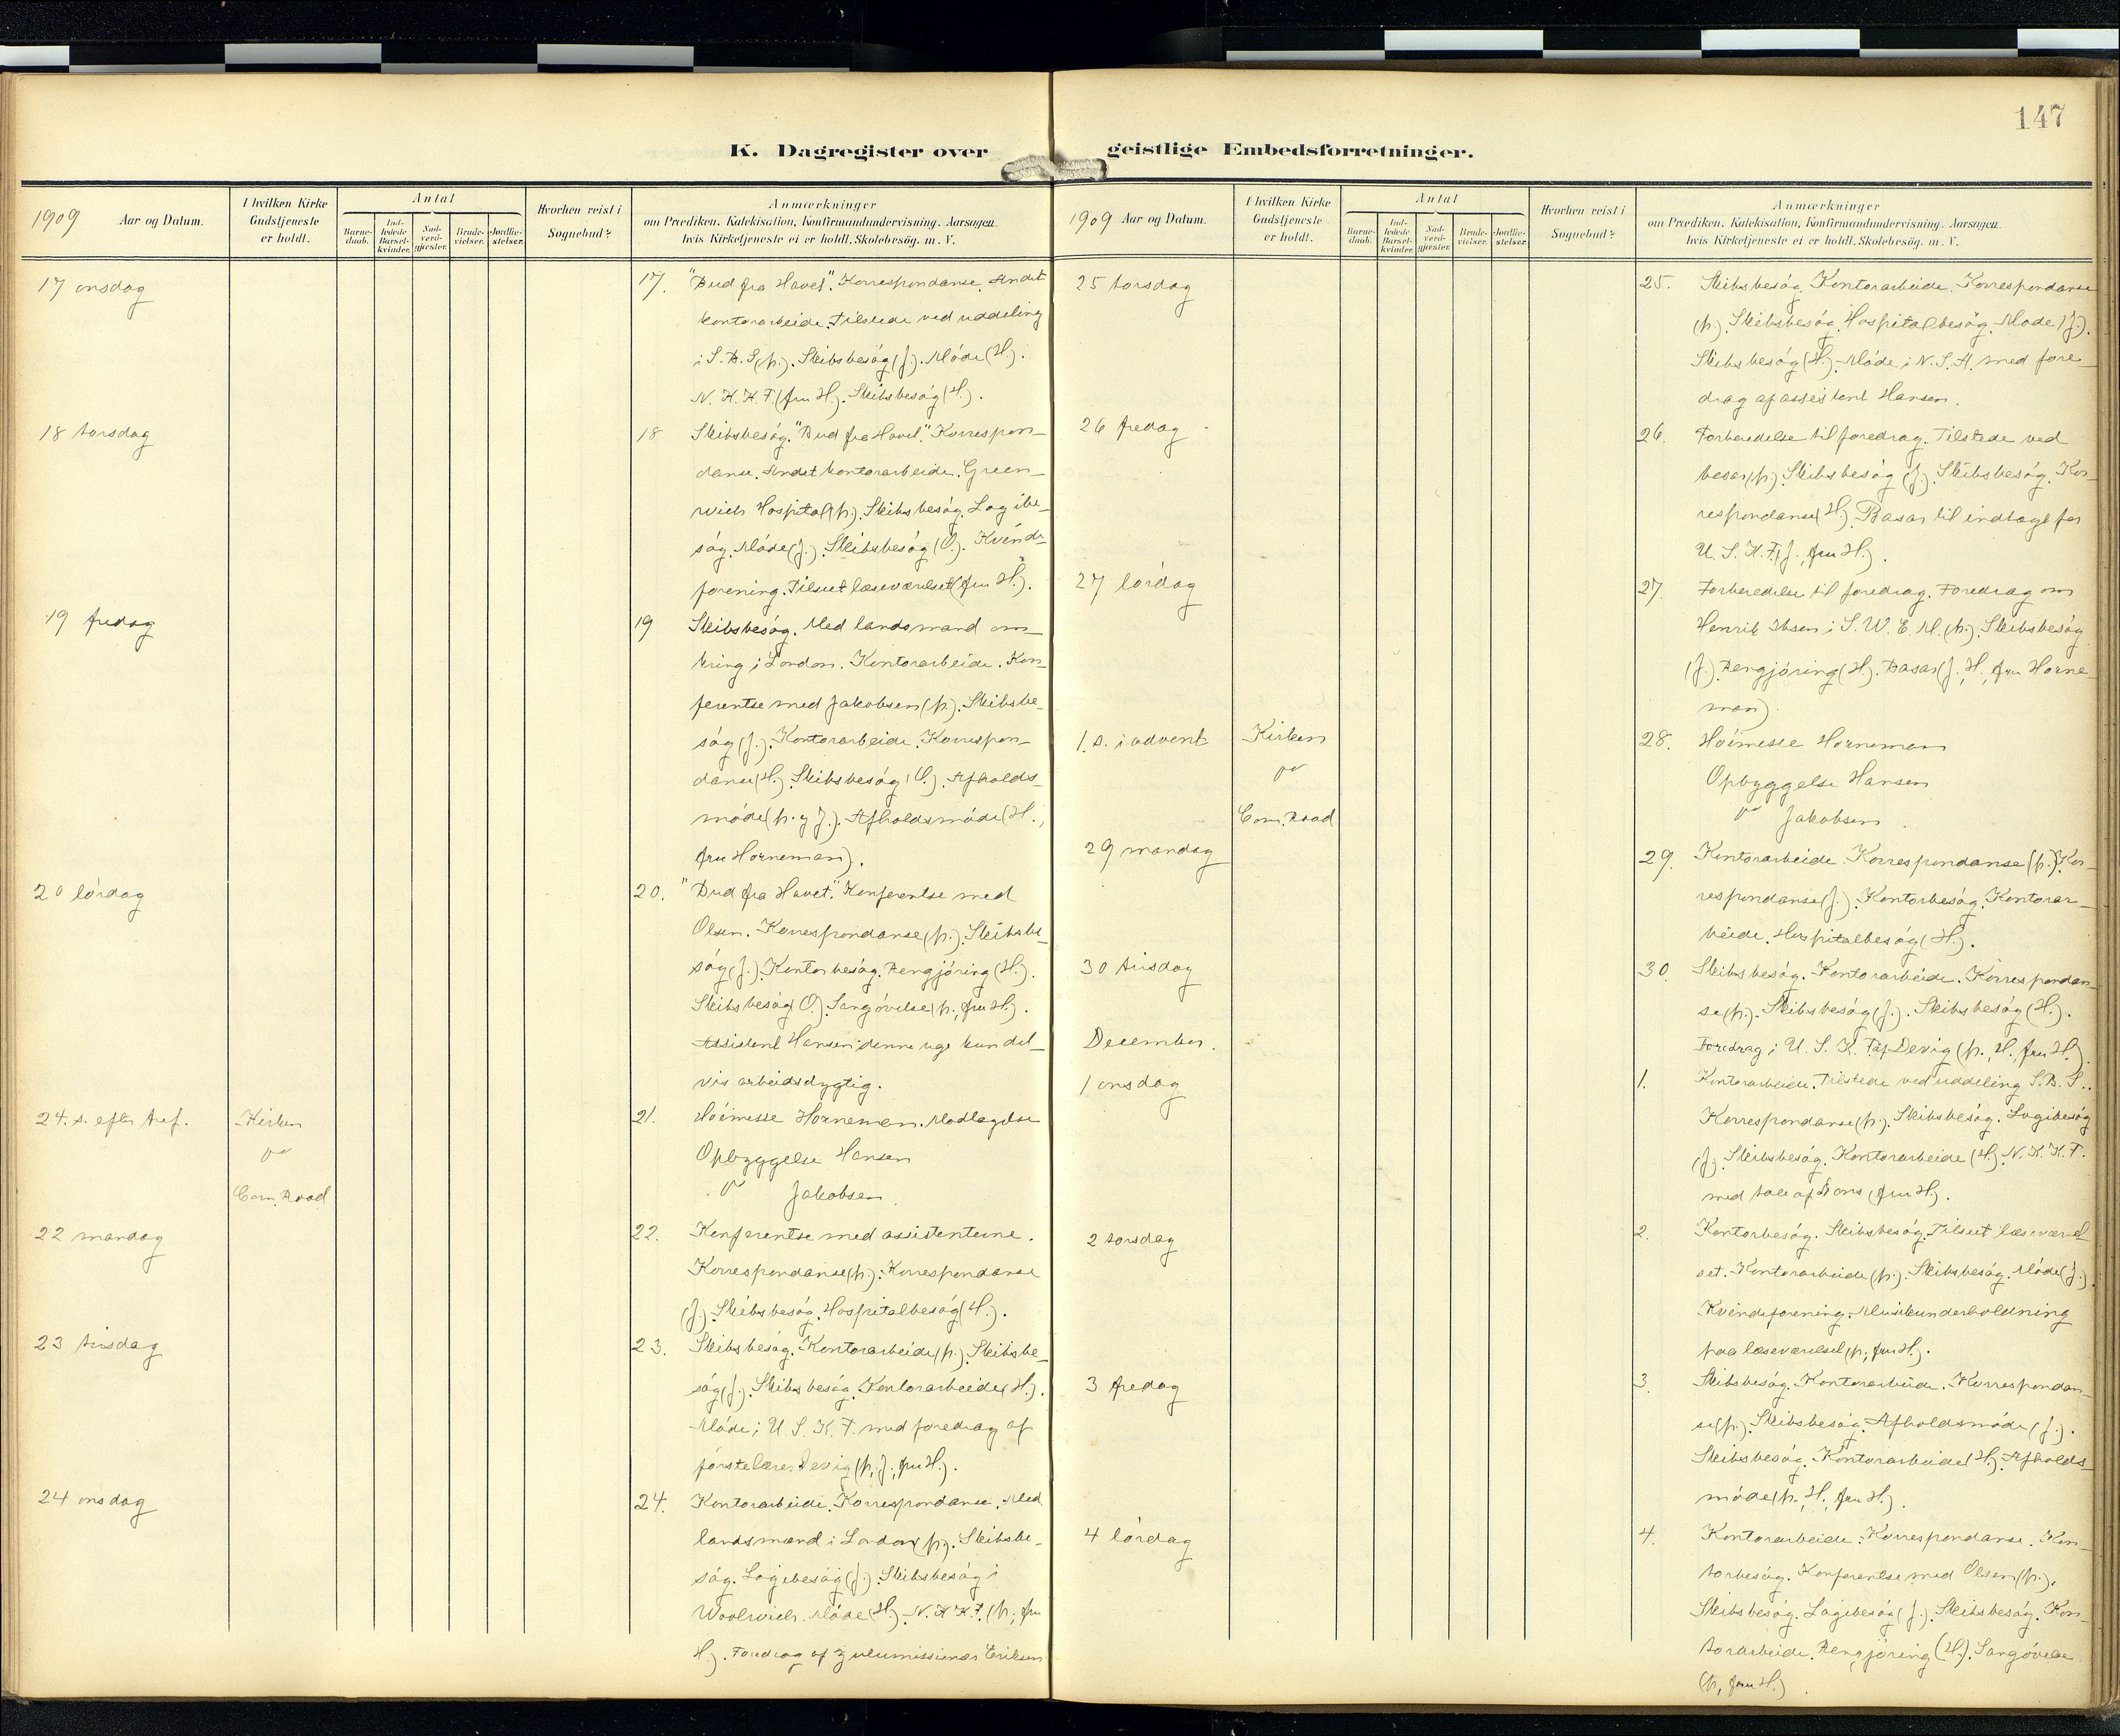 147
K. Dagregister over
1909 Aar og Datum.
I hvilken Kirke
Gudstjeneste
er holdt.
Antal
Barne-
daab.
Ind-
ledede
Barsel-
kvinder.
Nad-
verd-
gjæster.
Brude-
vielser.
Jordfæ-
stelser.
Hvorhen reist i
Sognebud?
Anmærkninger
om Prædiken, Katekisation, Konfirmandundervisning, Aarsagen,
hvis Kirketjeneste ei er holdt, Skolebesög, m. V.
17 onsdag
17. "Bud fra Havet". Korrespondanse. Andet
kontorarbeide. Tilstede ved uddeling
i S. B. S (p.). Skibsbesög (J.). Möde (H.).
N. K. K. F. (fru H.). Skibsbesög (H.).
18 torsdag
18 Skibsbesög. "Bud fra Havet." Korrespon-
danse. Andet kontorarbeide. Green-
wich Hospital (p.). Skibsbesög. Logibe-
sög. Möde (J.). Skibsbesög (O.). Kvinde-
forening. Tilseet læseværelset (fru H.).
19 fredag
19 Skibsbesög. Med landsmænd om-
kring i London. Kontorarbeide. Kon-
ferentse med Jakobsen (p.). Skibsbe-
sög (J.). Kontorarbeide. Korrespon-
danse (H.). Skibsbesög (O.). Afholds-
möde (p. og J.). Afholdsmöde (H.,
fru Horneman).
20 lördag
20. "Bud fra Havet." Konferentse med
Olsen. Korrespondanse (p.). Skibsbe-
sög (J.). Kontorbesög. Rengjöring (H.).
Skibsbesög (O.). Sangövelse (p., fru H.).
Assistent Hansen denne uge kun del-
vis arbeidsdygtig.
24. s. efter tref.
Kirken
Com. Road
21. Höimesse Horneman. Modtagelse
Opbyggelse Hansen
" Jakobsen
22 mandag
22. Konferentse med assistenterne.
Korrespondanse (p.). Korrespondanse
(J.). Skibsbesög. Hospitalbesög (H.).
23 tirsdag
23. Skibsbesög. Kontorarbeide (p.). Skibsbe-
sög (J.). Skibsbesög. Kontorarbeide (H.).
Möde i U. S. K. F. med foredrag af
förstelærer Devig (p., J., fru H.).
24 onsdag
24. Kontorarbeide. Korrespondanse. Med
landsmænd i London (p.). Skibsbe-
sög. Logibesög (J.). Skibsbesög i
Woolwich. Möde (H.). N. K. K. F. (p., fru
H.). Foredrag af zulumissionær Eriksen
geistlige Embedsforretninger.
1909 Aar og Datum.
I hvilken Kirke
Gudstjeneste
er holdt.
Antal
Barne-
daab.
Ind-
ledede
Barsel-
kvinder.
Nad-
verd-
gjæster.
Brude-
vielser.
Jordfæ-
stelser.
Hvorhen reist i
Sognebud?
Anmærkninger
om Prædiken, Katekisation, Konfirmandundervisning, Aarsagen,
hvis Kirketjeneste ei er holdt, Skolebesög, m. V.
25 torsdag
25. Skibsbesög. Kontorarbeide. Korrespondanse
(p.). Skibsbesög. Hospitalbesög. Möde (J.).
Skibsbesög (H.). Möde i N. S. A. med fore-
drag af assistent Hansen.
26 fredag
26. Forberedelse til foredrag. Tilstede ved
basar (p.). Skibsbesög (J.). Skibsbesög. Kor-
respondanse (H.). Basar til indtægt for
U. S. K. F. (J., fru H.).
27 lördag
27. Forberedelse til foredrag. Foredrag om
Henrik Ibsen i S. W. E. M. (p.). Skibsbesög
(J.). Rengjöring (H.). Basar (J., H., fru Horne-
man).
1. s. i advent
Kirken
Com. Road
28. Höimesse Horneman
Opbyggelse Hansen
" Jakobsen.
29 mandag
29. Kontorarbeide. Korrespondanse (p.). Kor-
respondanse (J.). Kontorbesög. Kontorar-
beide. Hospitalbesög (H.).
30 tirsdag
30. Skibsbesög. Kontorarbeide. Korrespondan-
se (p.). Skibsbesög (J.). Skibsbesög (H.).
Foredrag i U. S. K. F. af Devig (p., H., fru H.).
December.
1 onsdag
1. Kontorarbeide. Tilstede ved uddeling S. B. S..
Korrespondanse (p.). Skibsbesög. Logibesög
(J.). Skibsbesög. Kontorarbeide (H.). N. K. K. F.
med tale af (fru H.).
2 torsdag
2. Kontorbesög. Skibsbesög. Tilseet læseværel-
set. Kontorarbeide (p.). Skibsbesög. Möde (J.).
Kvindeforening. Musikunderholdning
paa læseværelset (p., fru H.).
3 fredag
3. Skibsbesög. Kontorarbeide. Korrespondan-
se (p.). Skibsbesög. Afholdsmöde (J.).
Skibsbesög. Kontorarbeide (H.). Afholds-
möde (p., H., fru H.).
4 lördag
4. Kontorarbeide. Korrespondanse. Kon-
torbesög. Konferentse med Olsen (p.).
Skibsbesög. Logibesög (J.). Skibsbesög. Kon-
torarbeide. Rengjöring (H.). Sangövelse
(p., fru H.).